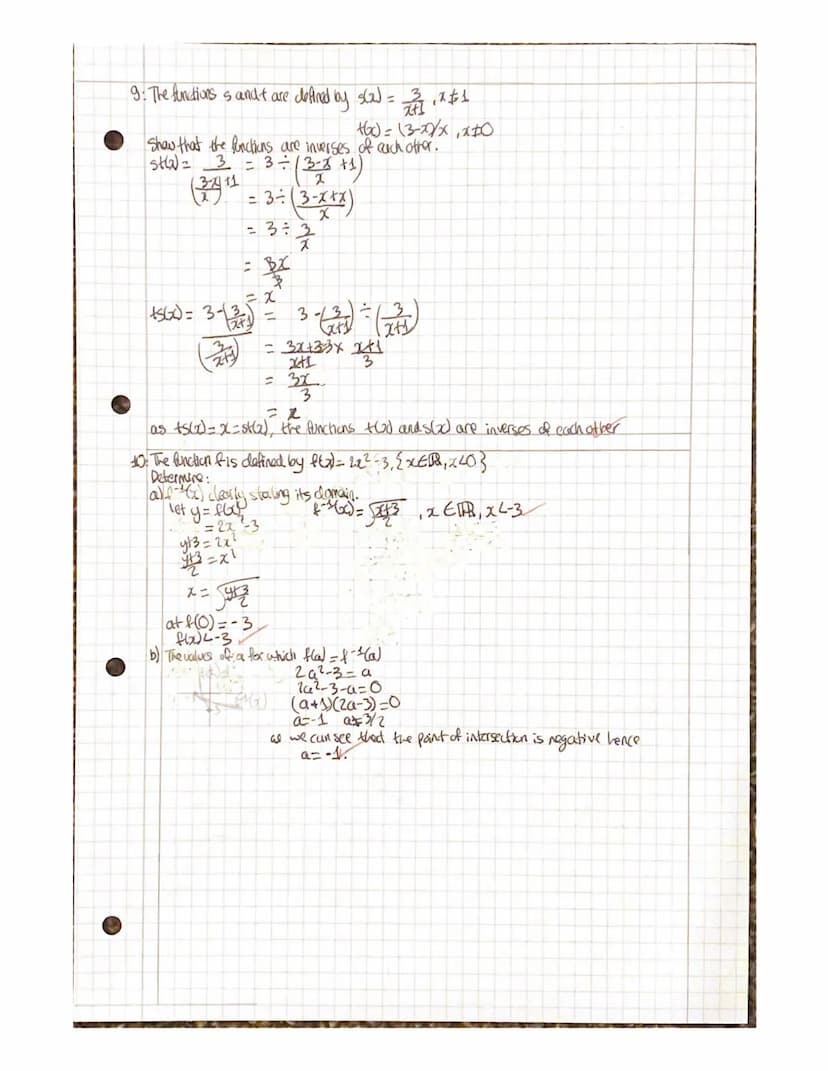 9: The functions s and t are defined by s(x) = 3/(x+1), x≠1
t(x) = (3-x)/x, x≠0
Show that the functions are inverses of each other.
st(x) = 3/((3-x)/x)+1 = 3 ÷ ((3-x)/x + 1)
= 3 ÷ ((3-x+x)/x)
= 3 ÷ 3/x
= 3x/3
= x
ts(x) = 3-(3/(x+1)) / (3/(x+1)) = 3-(3/(x+1)) ÷ (3/(x+1))
= 3x+3-3/(x+1) × (x+1)/3
= 3x/3
= x
as ts(x) = x = st(x), the functions t(x) and s(x) are inverses of each other
10: The function f is defined by f(x) = 2x²-3, {x∈ℝ, x<0}
Determine:
a) f⁻¹(x) clearly stating its domain.
let y = f(x) f⁻¹(x) = √((x+3)/2), x∈ℝ, x<-3
= 2x²-3
y+3 = 2x²
(y+3)/2 = x²
x = √((y+3)/2)
at f(0) = -3
f(x) < -3
b) The values of a for which f(a) = f⁻¹(a)
2a²-3 = a
2a²-3-a=0
(a+1)(2a-3)=0
a=-1 a≠3/2
as we can see that the point of intersection is negative hence
a = -1.